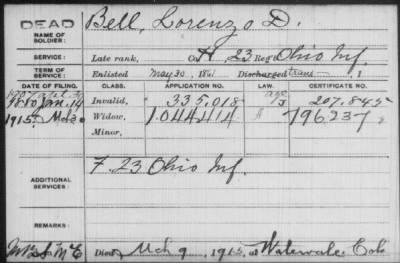 DEAD
Bell, Lorenzo D.
NAME OF SOLDIER:
SERVICE: Late rank, Co H, 23 Reg't Ohio Inf.
TERM OF SERVICE: Enlisted May 20, 1861 Discharged trans , 1
DATE OF FILING. CLASS. APPLICATION NO. LAW. CERTIFICATE NO.
1880 Jan. 14 Invalid, 335,018 207,845
1915, Mch Widow, 1,044,414 A 796237
Minor,
ADDITIONAL SERVICES: F. 23 Ohio Inf.
REMARKS:
Died Mch 9, 1915, at Watervale Colo